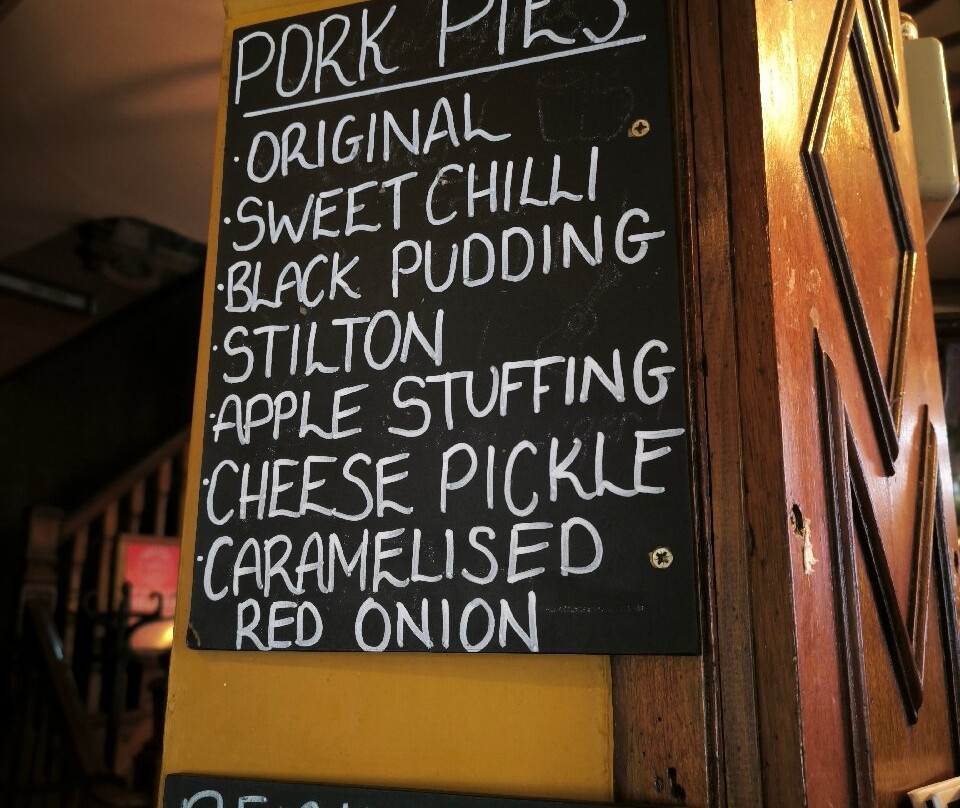 PORK PIES
· ORIGINAL
· SWEET CHILLI
· BLACK PUDDING
· STILTON
· APPLE STUFFING
· CHEESE PICKLE
· CARAMELISED
RED ONION